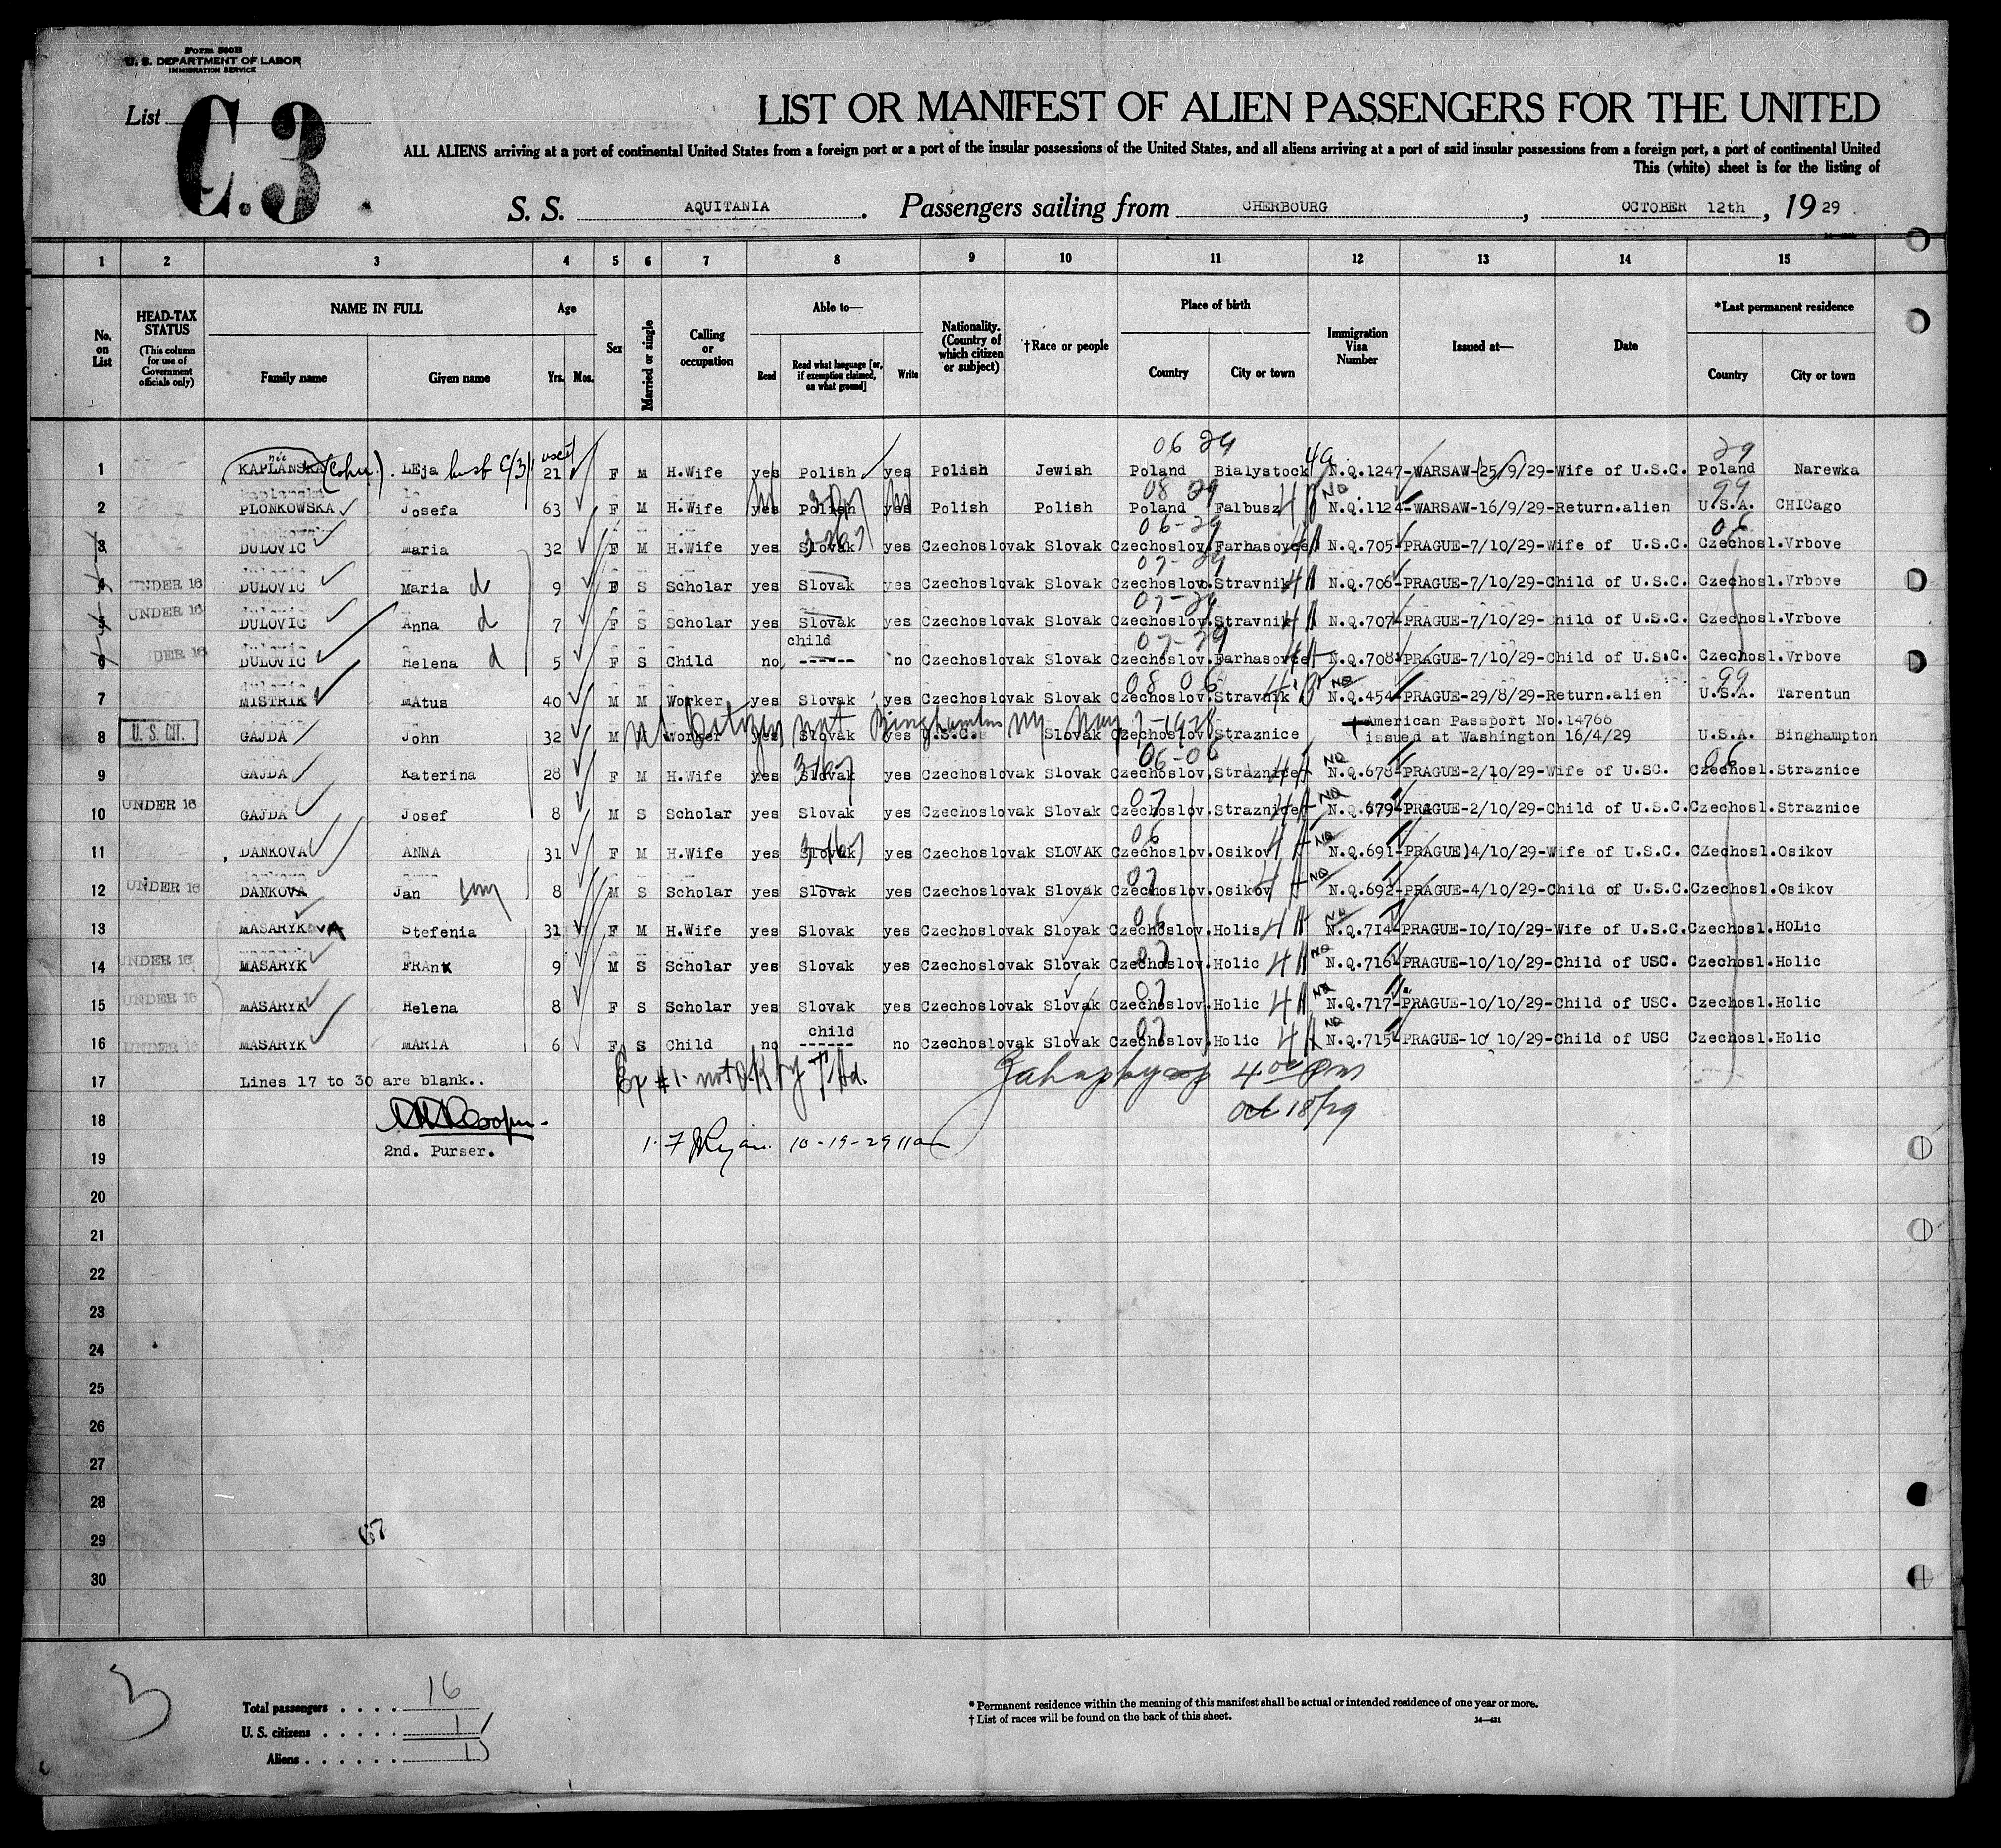 Form 500B
U. S. DEPARTMENT OF LABOR
IMMIGRATION SERVICE
List C.3.
LIST OR MANIFEST OF ALIEN PASSENGERS FOR THE UNITED
ALL ALIENS arriving at a port of continental United States from a foreign port or a port of the insular possessions of the United States, and all aliens arriving at a port of said insular possessions from a foreign port, a port of continental United
This (white) sheet is for the listing of
S. S. AQUITANIA . Passengers sailing from CHERBOURG , OCTOBER 12th , 19 29
1 2 3 4 5 6 7 8 9 10 11 12 13 14 15
No. on List
HEAD-TAX STATUS (This column for use of Government officials only)
NAME IN FULL Family name Given name
Age Yrs. Mos.
Sex
Married or single
Calling or occupation
Able to— Read Read what language [or, if exemption claimed, on what ground] Write
Nationality. (Country of which citizen or subject)
†Race or people
Place of birth Country City or town
Immigration Visa Number
Issued at—
Date
*Last permanent residence Country City or town
06 29 29
1 KAPLANSKA née LEja husb C/3/1 21 F M H.Wife yes Polish yes Polish Jewish Poland Bialystock N.Q.1247-WARSAW-25/9/29-Wife of U.S.C. Poland Narewka
08 29 99
2 PLONKOWSKA Josefa 63 F M H.Wife yes Polish yes Polish Polish Poland Falbusz N.Q.1124-WARSAW-16/9/29-Return.alien U.S.A. CHICago
06-29 06
3 DULOVIC Maria 32 F M H.Wife yes Slovak yes Czechoslovak Slovak Czechoslov.Farhasovce N.Q.705-PRAGUE-7/10/29-Wife of U.S.C. Czechosl.Vrbove
07-29
4 UNDER 16 DULOVIC Maria d 9 F S Scholar yes Slovak yes Czechoslovak Slovak Czechoslov.Stravnik N.Q.706-PRAGUE-7/10/29-Child of U.S.C. Czechosl.Vrbove
07-29
5 UNDER 16 DULOVIC Anna d 7 F S Scholar yes Slovak yes Czechoslovak Slovak Czechoslov.Stravnik N.Q.707-PRAGUE-7/10/29-Child of U.S.C. Czechosl.Vrbove
child 07-29
6 DER 16 DULOVIC Helena d 5 F S Child no ------ no Czechoslovak Slovak Czechoslov.Farhasovce N.Q.708-PRAGUE-7/10/29-Child of U.S.C. Czechosl.Vrbove
08 06 99
7 MISTRIK mAtus 40 M M Worker yes Slovak yes Czechoslovak Slovak Czechoslov.Stravnik N.Q.454-PRAGUE-29/8/29-Return.alien U.S.A. Tarentun
American Passport No.14766
8 U. S. CIT. GAJDA John 32 M Worker yes Slovak yes U.S.C. Slovak Czechoslov.Straznice issued at Washington 16/4/29 U.S.A. Binghampton
06-06 06
9 GAJDA Katerina 28 F M H.Wife yes Slovak yes Czechoslovak Slovak Czechoslov.Straznice N.Q.678-PRAGUE-2/10/29-Wife of U.SC. Czechosl.Straznice
07
10 UNDER 16 GAJDA Josef 8 M S Scholar yes Slovak yes Czechoslovak Slovak Czechoslov.Straznice N.Q.679-PRAGUE-2/10/29-Child of U.S.C.Czechosl.Straznice
06
11 DANKOVA ANNA 31 F M H.Wife yes Slovak yes Czechoslovak SLOVAK Czechoslov.Osikov N.Q.691-PRAGUE)4/10/29-Wife of U.S.C. CZechosl.Osikov
07
12 UNDER 16 DANKOVA Jan son 8 M S Scholar yes Slovak yes Czechoslovak Slovak Czechoslov.Osikov N.Q.692-PRAGUE-4/10/29-Child of U.S.C.Czechosl.Osikov
06
13 MASARYKOVA Stefenia 31 F M H.Wife yes Slovak yes Czechoslovak Slovak Czechoslov.Holis N.Q.714-PRAGUE-10/10/29-Wife of U.S.C.Czechosl.HOLic
07
14 UNDER 16 MASARYK FRAnK 9 M S Scholar yes Slovak yes Czechoslovak Slovak Czechoslov.Holic N.Q.716-PRAGUE-10/10/29-Child of USC. Czechosl.Holic
07
15 UNDER 16 MASARYK Helena 8 F S Scholar yes Slovak yes Czechoslovak Slovak Czechoslov.Holic N.Q.717-PRAGUE-10/10/29-Child of USC. Czechosl.Holic
child 07
16 UNDER 16 MASARYK mARIA 6 F S Child no ------ no Czechoslovak Slovak Czechoslov.Holic N.Q.715-PRAGUE-10 10/29-Child of USC Czechosl.Holic
17 Lines 17 to 30 are blank.. Ex #1 not O.K by 4 00 Pm
18 Cooper Oct 18/29
19 2nd. Purser. Ryan 10-19-29 11a
20
21
22
23
24
25
26
27
28
29
30
67
3
Total passengers . . . . 16
U. S. citizens . . . . . 1
Aliens . . . . . . 15
* Permanent residence within the meaning of this manifest shall be actual or intended residence of one year or more.
† List of races will be found on the back of this sheet.
14—421